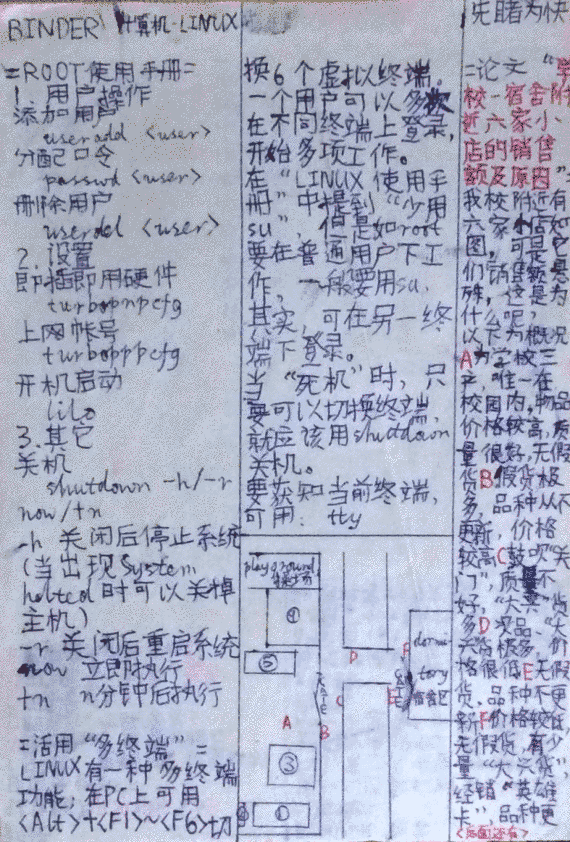 BINDER 计算机-LINUX
=ROOT使用手册=
1. 用户操作
添加用户
useradd <user>
分配口令
passwd <user>
删除用户
userdel <user>
2. 设置
即插即用硬件
turbopnpcfg
上网帐号
turbopppcfg
开机启动
lilo
3.其它
关机
shutdown -h/-r
now/+n
-h 关闭后停止系统
(当出现System
halted时可以关掉
主机)
-r 关闭后重启系统
now 立即执行
+n n分钟后执行
=活用“多终端”=
LINUX有一种多终端
功能;在PC上可用
<Alt>+<F1>~<F6>切
换6个虚拟终端。
一个用户可以多次
在不同终端上登录,
开始多项工作。
在“LINUX使用手
册”中提到“少用
su”,但是如root
要在普通用户下工
作,一般要用su,
其实,可在另一终
端下登录。
当“死机”时,只
要可以切换终端,
就应该用shutdown
关机。
要获知当前终端,
可用: tty
playground
操场
④
⑤
③
①
A
GATE
B
C
D
E
F
GATE
dormi
tory
宿舍区
先睹为快
=论文“学
校-宿舍附
近六家小
店的销售
额及原因”=
我校附近有
六家小店如
图,可是它
们销售额悬
殊,这是为
什么呢?
以下为概况
A为学校三
产,唯一在
校园内,物品
价格较高,质
量很好,无假
货B假货极
多,品种从不
更新,价格
较高C鼓吹“关
门”,质量不
好,“大兴”货
多D次品、“大
兴”货极多,价
格很低E无假
货,品种不更
新F价格较低,
无假货,有少
量“大兴货”,
经销“英雄
卡”,品种更
<后面还有>